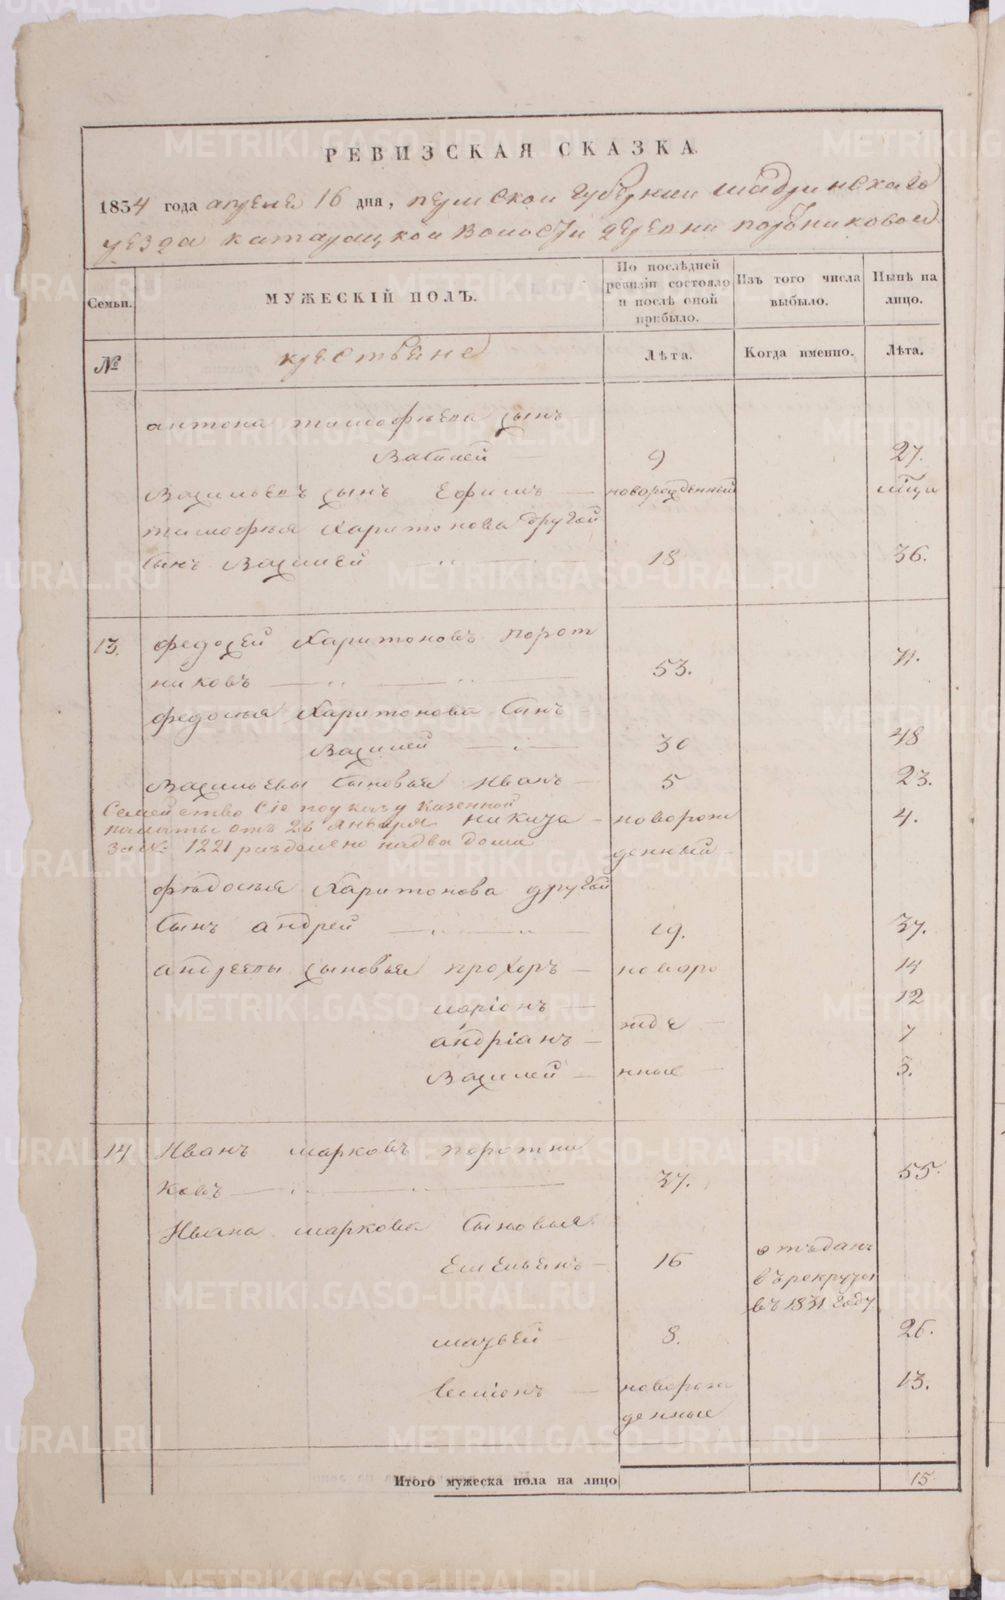 РЕВИЗСКАЯ СКАЗКА
1834 года апреля 16 дня, пермской губернии шадринскаго
уезда катайской волости деревни портниковой
Семьи.
МУЖЕСКІЙ ПОЛЪ.
По послѣдней ревизіи состояло и послѣ оной прибыло.
Изъ того числа выбыло.
Нынѣ на лицо.
№
крестьяне
Лѣта.
Когда именно.
Лѣта.
антона тимофѣева сынъ
Василей 9 27.
Васильевъ сынъ Ефимъ новорожденный
тимофья Харитонова другой
сынъ Василей 18 36.
13. федосей Харитоновъ порот
никовъ 53. 71.
федосья Харитонова сынъ
Василей 30 48
Васильевы сыновья иванъ 5 23.
Семейство сіе по указу казенной
палаты отъ 26 января
за № 1221 разделено на два дома
никита новорож 4.
денный
фѣдосья Харитонова другой
сынъ андрей 19. 37.
андреевы сыновья прохоръ новоро 14
ларіонъ 12
андріанъ жде 7
Василей нные 5.
14 Иванъ марковъ поротни
ковъ 37. 55.
Ивана маркова сыновья
Емельянъ 16 отъдан
въ рекруты
въ 1831 году
матвей 8. 26.
семіонъ новорож 13.
денные
Итого мужеска пола на лицо 15
METRIKI.GASO-URAL.RU